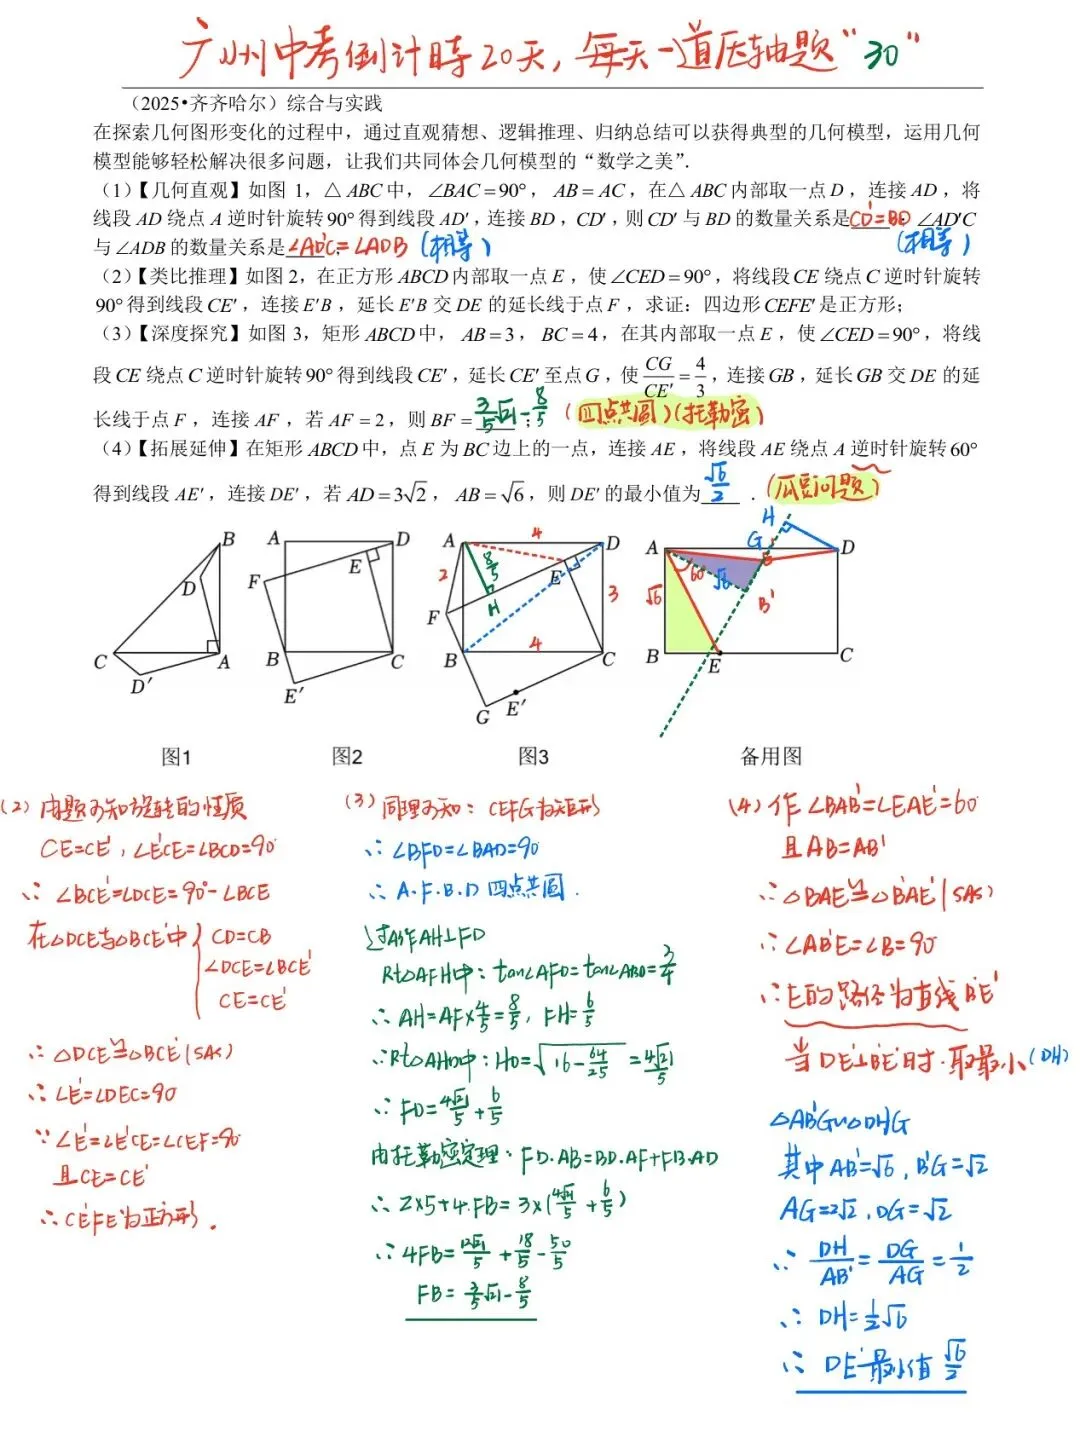 广州中考倒计时20天,每天一道压轴题“30”
(2025•齐齐哈尔)综合与实践
在探索几何图形变化的过程中，通过直观猜想、逻辑推理、归纳总结可以获得典型的几何模型，运用几何
模型能够轻松解决很多问题，让我们共同体会几何模型的“数学之美”.
(1)【几何直观】如图 1，△ABC 中，∠BAC=90°，AB=AC，在△ABC 内部取一点 D，连接 AD，将
线段 AD 绕点 A 逆时针旋转 90° 得到线段 AD′，连接 BD，CD′，则 CD′ 与 BD 的数量关系是 CD′=BD ∠AD′C
与∠ADB 的数量关系是 ∠AD′C=∠ADB (相等) (相等)
(2)【类比推理】如图 2，在正方形 ABCD 内部取一点 E，使∠CED=90°，将线段 CE 绕点 C 逆时针旋转
90° 得到线段 CE′，连接 E′B，延长 E′B 交 DE 的延长线于点 F，求证：四边形 CEFE′ 是正方形；
(3)【深度探究】如图 3，矩形 ABCD 中，AB=3，BC=4，在其内部取一点 E，使∠CED=90°，将线
段 CE 绕点 C 逆时针旋转 90° 得到线段 CE′，延长 CE′ 至点 G，使 CG/CE′=4/3，连接 GB，延长 GB 交 DE 的延
长线于点 F，连接 AF，若 AF=2，则 BF= 3/5√21-8/5；(四点共圆)(托勒密)
(4)【拓展延伸】在矩形 ABCD 中，点 E 为 BC 边上的一点，连接 AE，将线段 AE 绕点 A 逆时针旋转 60°
得到线段 AE′，连接 DE′，若 AD=3√2，AB=√6，则 DE′ 的最小值为 √6/2 .(瓜豆问题)
B D C A D′
图1
A D E F B C E′
图2
A 4 D 2 8/5 E H 3 F B 4 C G E′
图3
H A G D 60 √6 √6 B′ B E C
备用图
(2) 由题可知旋转的性质
CE=CE′,∠E′CE=∠BCD=90°
∴ ∠BCE′=∠DCE=90°-∠BCE
在△DCE与△BCE′中
CD=CB
∠DCE=∠BCE′
CE=CE′
∴ △DCE≌△BCE′(SAS)
∴ ∠E′=∠DEC=90
∵ ∠E′=∠E′CE=∠CEF=90
且CE=CE′
∴ CE′FE为正方形.
(3) 同理可知: CEFG为矩形
∴ ∠BFD=∠BAD=90
∴ A.F.B.D 四点共圆.
过A作AH⊥FD
Rt△AFH中: tan∠AFD=tan∠ABD=3/4
∴ AH=AF×4/5=8/5, FH=6/5
∴Rt△AHD中: HD=√(16-64/25)=4√21/5
∴ FD=4√21/5+6/5
由托勒密定理: FD·AB=BD·AF+FB·AD
∴ 2×5+4·FB=3×(4√21/5+6/5)
∴ 4FB=12√21/5+18/5-50/5
FB=3/5√21-8/5
(4) 作∠BAB′=∠EAE′=60
且AB=AB′
∴ △BAE≌△B′AE′(SAS)
∴ ∠AB′E′=∠B=90
∴ E′的路径为直线B′E′
当DE′⊥B′E′时.取最小(DH)
△AB′G∽△DHG
其中AB′=√6, B′G=√2
AG=2√2, DG=√2
∴ DH/AB′=DG/AG=1/2
∴ DH=1/2√6
∴ DE′最小值√6/2